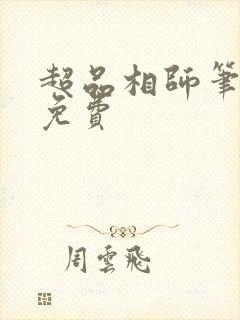 超品相師筆
免費
周雲飛